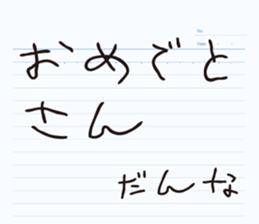 おめでと
さん
だんな